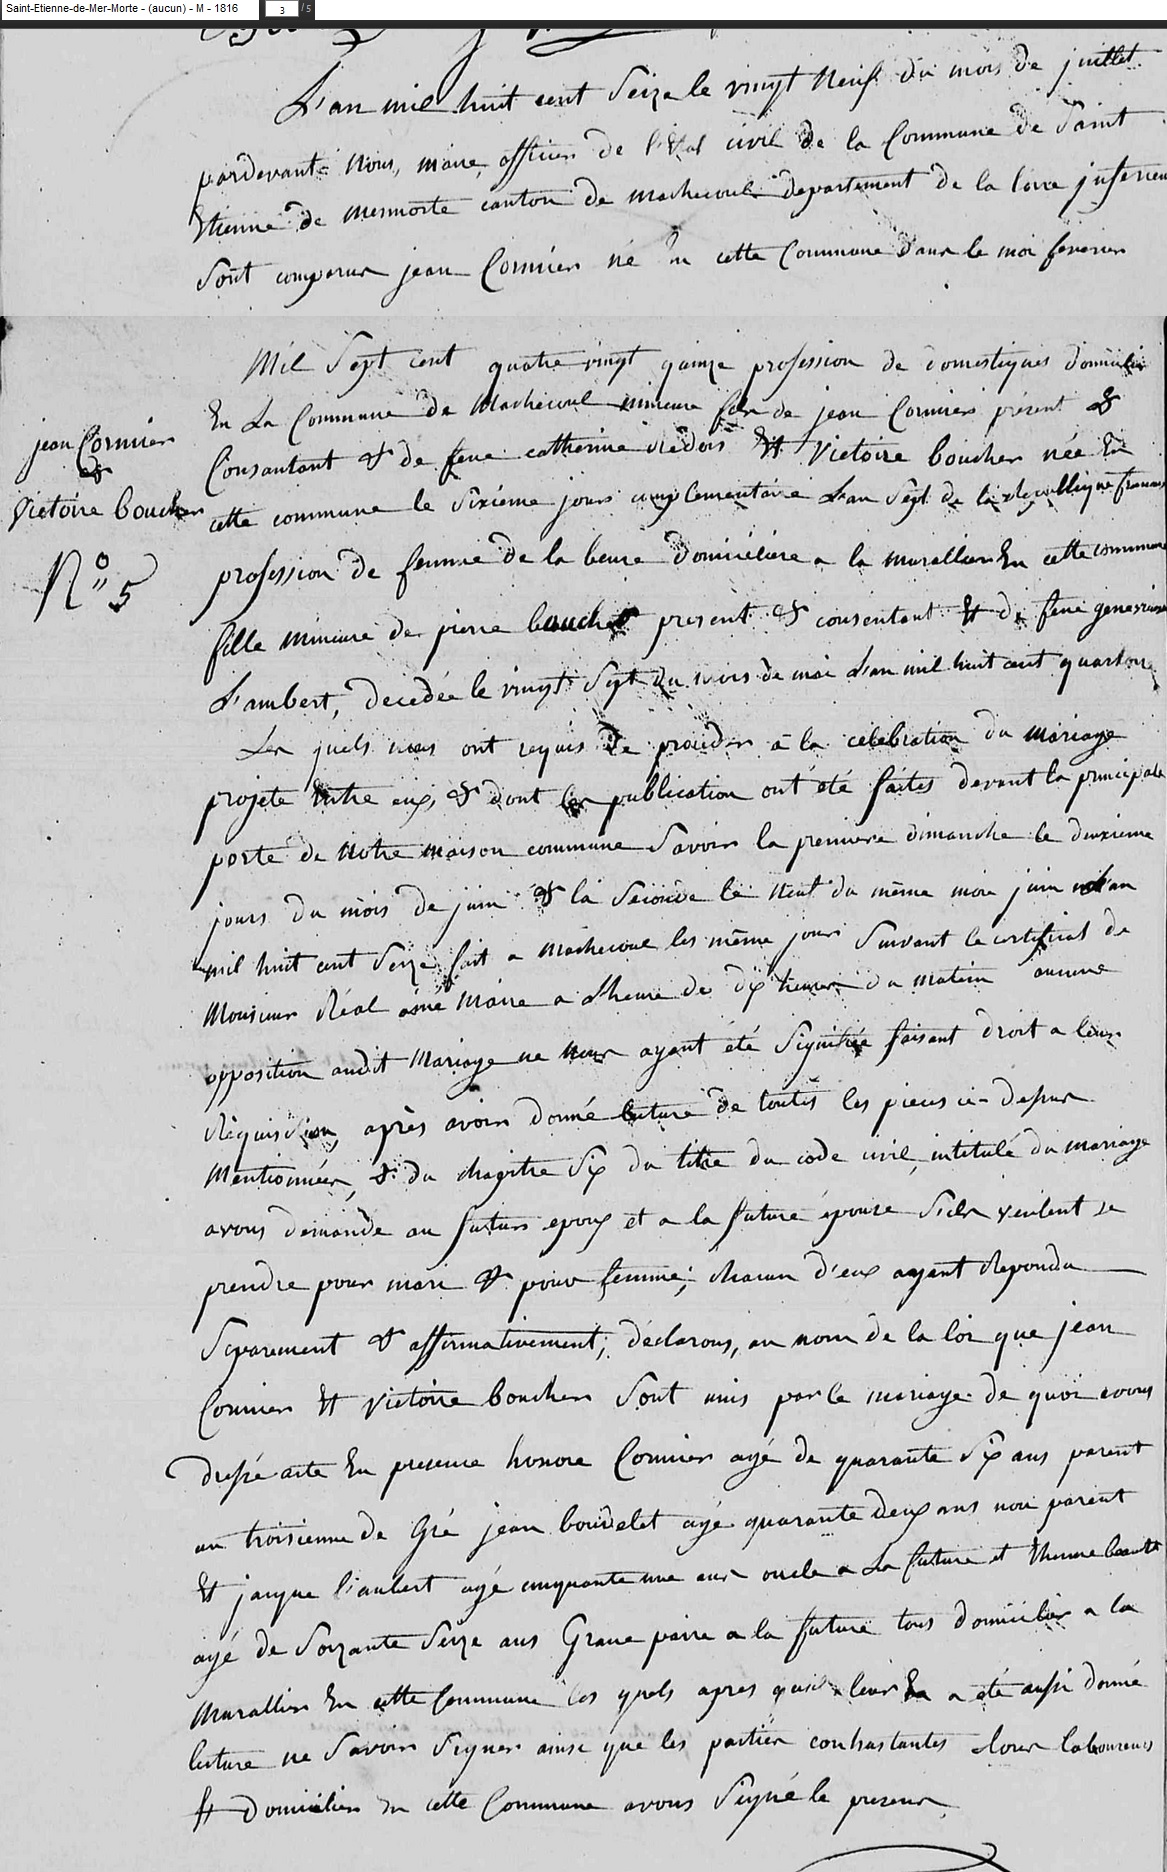 Saint-Etienne-de-Mer-Morte - (aucun) - M - 1816
3 / 5
L'an mil huit cent Seize le vingt Neuf du mois de juillet
pardevant Nous, maire, officier de l'Etat civil de la Commune de Saint
Etienne de mermorte canton de machecoul departement de la loire inferieu
Sont comparus jean Cormier né En cette Commune dans le moi fevrier
Mil Sept cent quatre vingt quinze profession de domestiques domicilier
En La Commune de Machecoul mineure fils de jean Cormier présent &
Consantant & de feue catherine Et Victoire boucher née En
cette commune le Sixième jours complementaire L'an Sept de la republique francais
profession de femme de la beure domicilière a la murallier En cette commune
fille mineure de pierre boucher present & consentant Et de feue genevieve
Lambert, decedée le vingt Sept du mois de mai L'an mil huit cent quartorze
Les quels nous ont requis De proceder à la célébration du mariage
projeté Entre eux, & dont les publication ont été faites devant la principale
porte de Notre maison commune Savoir la première dimanche le deuxième
jours du mois de juin & la Seconde le Neuf du même moi juin l'an
mil huit cent Seize fait a Machecoul les même jours Suivant le certificat de
Monsieur Réal ainé Maire a L'heure de dix heures du matin aucune
opposition audit Mariage ne Nous ayant été Signifiée faisant droit a leur
Réquisition, après avoir donné lecture de toutes les pieces ci-dessus
Mentionnées, & du chapitre Six du titre du code civil, intitulé du mariage
avons demandé au futur epoux et a la future épouse S'ils veulent se
prendre pour mari & pour femme; chacun d'eux ayant Repondu
Séparement & affirmativement; déclarons, au nom de la loi que jean
Cormier Et Victoire boucher Sont unis par le mariage de quoi avons
dressé acte En presence honore Cormier agé de quarante Six ans parent
au troisieme de Gré jean bourdelet agé quarante deux ans non parent
Et jacque l'ambert agé cinquante une ans oncle a La future et
agé de Soixante Seize ans Grane paire a la future tous domicilier a la
Murallier En cette Commune les quels apres quil leur En a été aussi donné
lecture ne Savoir Signer ainsi que les parties contractantes tous laboureurs
Et Domicilier En cette Commune avons Signé le present
jean Cormier
&
Victoire boucher
N° 5